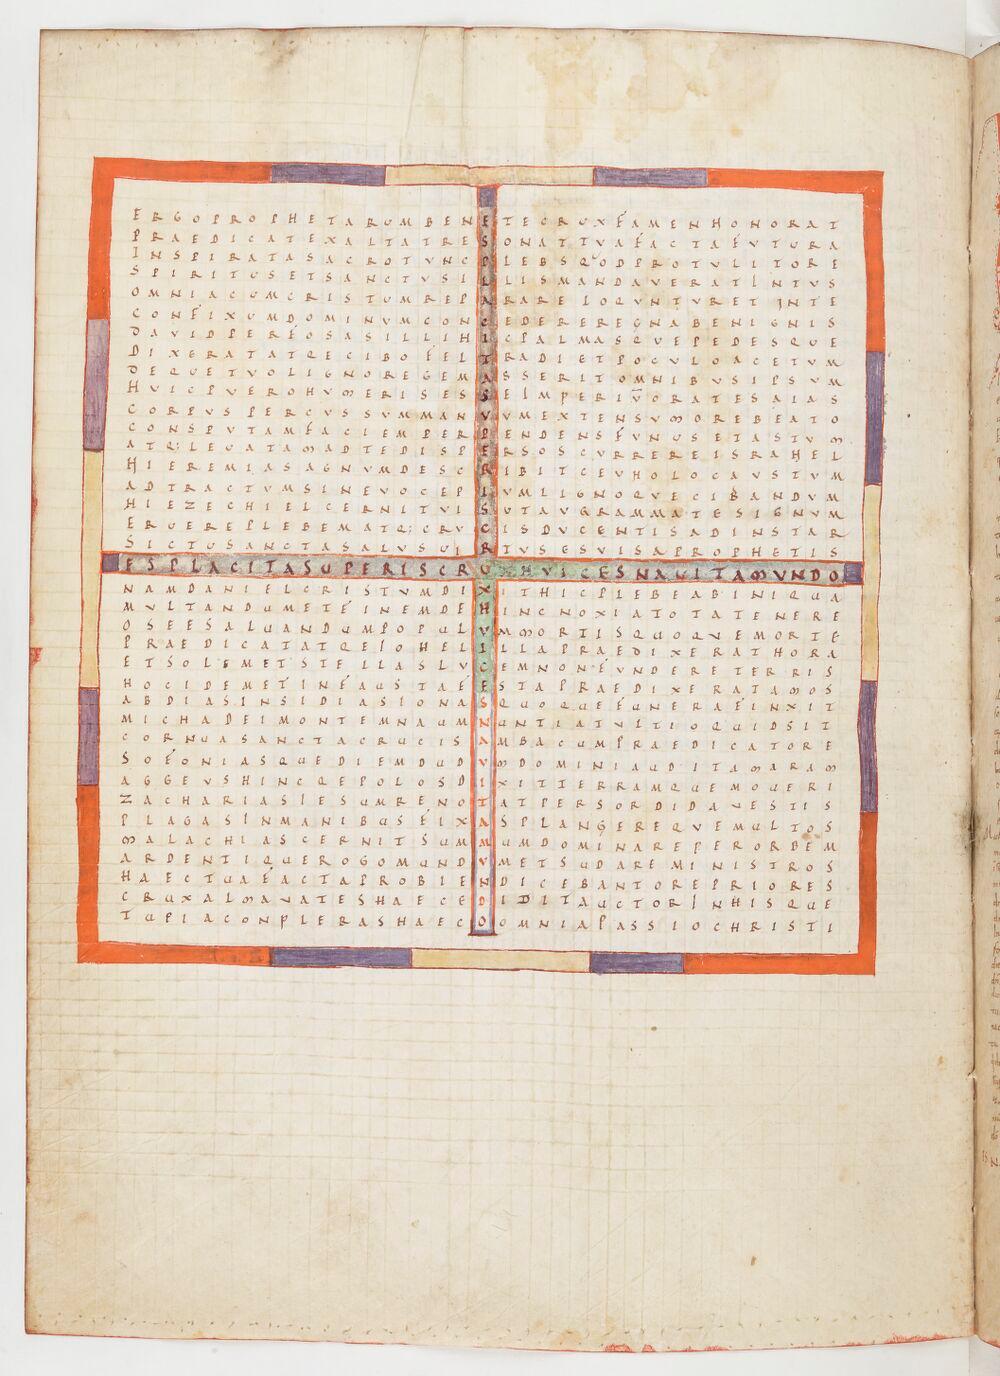 ERGOPROPHETARUMBENETECRUXFAMENHONORAT
PRAEDICATEXALTATRESONATTVAFACTAFVTVRA
INSPIRATASACROTVNCPLEBSQODPROTVLITORE
SPIRITUSETSANCTVSILLISMANDAVERATINTVS
OMNIACUMCRISTUMREPARARELOQVNTVRETINTE
CONFIXUMDOMINVMCONCEDEREREGNABENIGNIS
DAVIDPERFOSASILLIHICPALMASQVEPEDESQUE
DIXERATATQECIBOFELTRADIETPOCVLOACETVM
DEQUETVOLIGNOREGEMASSERITOMNIBVSIPSVM
HVICPVEROHVMERISESSEIMPERIVORATESAIAS
CORPVSPERCVSSVMMANVVMEXTENSVMOREBEATO
CONSPVTAMFACIEMPERPENDENSFVNVSETASTVM
ATQ:LEVATAMADTEDISPERSOSCVRREREISRAHEL
HIEREMIASAGNVMDESCRIBITCEVHOLOCAVSTVM
ADTRACTVMSINEVOCEPIVMLIGNOQVECIBANDVM
HIEZECHIELCERNITVISUTAVGRAMMATESIGNVM
ERVEREPLEBEMATQ:CRVCISDVCENTISADINSTAR
SICTUSANCTASALVSVIRTVSESVISAPROPHETIS
ESPLACITASUPERISCRUXHVICESNAVITAMVNDO
NAMDANIELCRISTVMDIXITHICPLEBEABINIQUA
MVLTANDUMETEINEMDEHINCNOXIATOTATENERE
OSEESALUANDUMPOPULVMMORTISQUOQVEMORTE
PRAEDICATATQEIOHELILLAPRAEDIXERATHORA
ETSOLEMETSTELLASLVCEMNONFVNDERETERRIS
HOCIDEMETINFAUSTAFESTAPRAEDIXERATAMOS
ABDIASINSIDIASIONASQUOQUEFUNERAFINXIT
MICHADEIMONTEMNAUMNUNTIATVLTIOQUIDSIT
CORNUASANCTACRUCISAMBACUMPRAEDICATORE
SOFONIASQUEDIEMDUDVMDOMINIAUDITAMARAM
AGGEVSHINCQEPOLOSDIXITTERRAMQUEMOUERI
ZACHARIASIESUMRENOTATPERSORDIDAVESTIS
PLAGASINMANIBUSFIXASPLANGEREQVEMULTOS
MALACHIASCERNITSUMMUMDOMINAREPERORBEM
ARDENTIQUEROGOMUNDVMETSUDAREMINISTROS
HAECTUAFACTAPROBIENDICEBANTOREPRIORES
CRUXALMAVATESHAECEDIDITAUCTORINHISQUE
TUPIACONPLERASHAECOOMNIAPASSIOCHRISTI